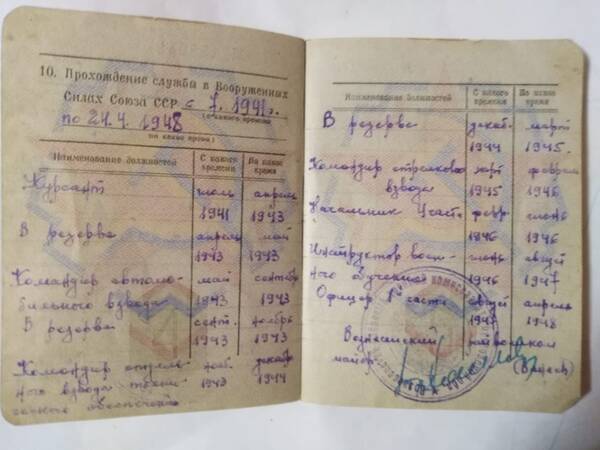 10. Прохождение службы в Вооруженных
Силах Союза ССР с 7. 1941 г.
(с какого времени
по 24.4. 1948
по какое время)
Наименование должностей С какого времени По какое время
Курсант июль 1941 апрель 1943
В резерве апрель 1943 май 1943
Командир автомо-
бильного взвода май 1943 сентябрь 1943
В резерве сент. 1943 ноябрь 1943
Командир стрелко-
ного взвода технич
нояб. 1943 декабрь 1944
Наименование должностей С какого времени По какое время
В резерве декаб. 1944 март 1945.
Командир стрелкового
взвода март 1945 февраль 1946
Начальник част. февр. 1946 июнь 1946
Инструктор воен-
ного обучения июнь 1946 август 1947
Офицер 1 части август 1947 апрель 1948
Вознесенский райвоенком
майор